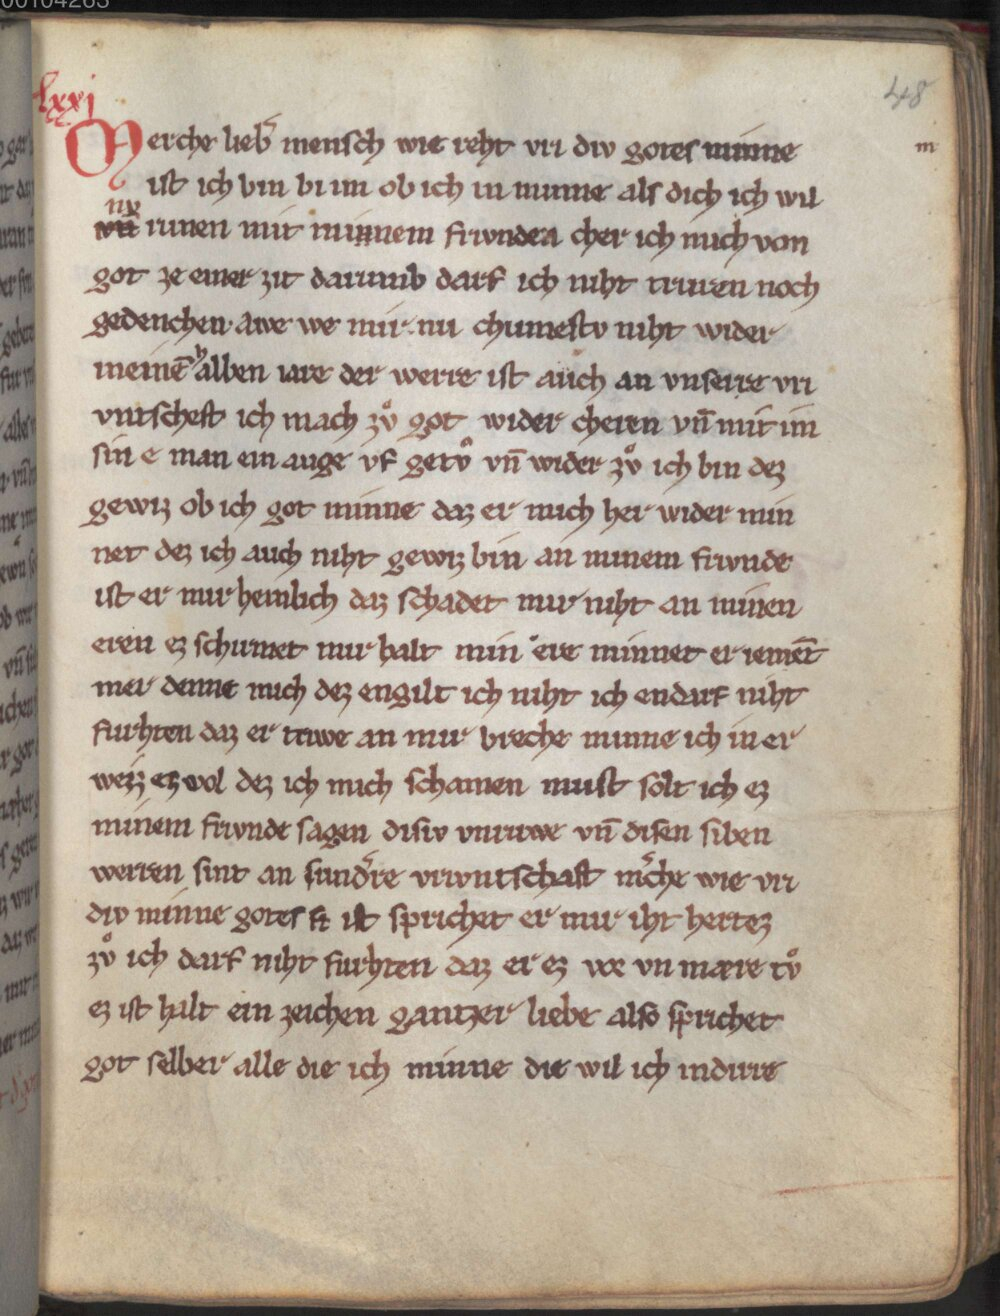 00104263
lxxi
48
Merche liebˀ mensch wie reht vri div gotes minne
m
ist ich bin bi im ob ich in minne als dich ich wil
nv
runen mit minnem frivnde cher ich mich von
got ze einer zit darumb darf ich niht truren noch
gedenchen awe we mir nu chumestv niht wider
meinē halben iare der werre ist auch an vnserre vri
vntscheft ich mach zvͦ got wider cheren vn̄ mit im
sin e man ein auge vf getvͦ vn̄ wider zvͦ ich bin dez
gewiz ob ich got minne daz er mich her wider min
net dez ich auch niht gewiz bin an minem frivnde
ist er mir heinlich daz schadet mir niht an minen
eren ez schirmet mir halt min ere minnet er iemēt
mer denne mich dez engilt ich niht ich endarf niht
furhten daz er triwe an mir breche minne ich in er
weiz ez wol dez ich mich schamen must solt ich ez
minem frivnde sagen disiv vntriwe vn̄ disen siben
werren sint an sundˀre vrivntschaft mˀche wie vri
div minne gotes ist sprichet er mir iht hertez
zvͦ ich darf niht furhten daz er ez vx vn mære tvͦ
ez ist halt ein zeichen gantzer liebe also sprichet
got selber alle die ich minne die wil ich indirre